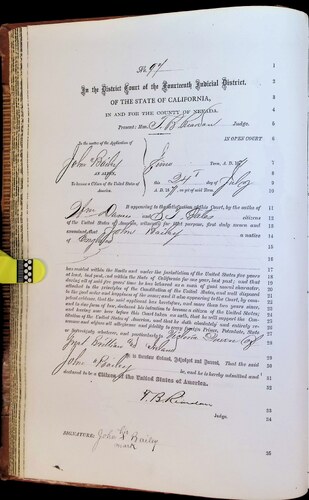 No. 97
In the District Court of the Fourteenth Judicial District,
OF THE STATE OF CALIFORNIA,
IN AND FOR THE COUNTY OF NEVADA.
Present: Hon. T. B. Reardan Judge.
IN OPEN COURT
In the matter of the Application of
John Bailey
AN ALIEN,
To become a Citizen of the United States of
America.
June Term, A. D. 187
this 24th day of July
A. D. 187
It appearing to the satisfaction of this Court, by the oaths of
Wm and citizens
of the United States of America, witnesses for that purpose, first duly sworn and
examined, that John Bailey a native
of England
has resided within the limits and under the jurisdiction of the United States five years
at least, last past, and within the State of California for one year, last past; and that
during all of said five years' time he has behaved as a man of good moral character,
attached to the principles of the Constitution of the United States, and well disposed
to the good order and happiness of the same; and it also appearing to the Court, by
competent evidence, that the said applicant has heretofore, and more than two years since,
and in due form of law, declared his intention to become a citizen of the United States;
and having now here before this Court taken an oath, that he will support the
Constitution of the United States of America, and that he doth absolutely and entirely
renounce and abjure all allegiance and fidelity to every foreign Prince, Potentate, State
or Sovereignty whatever, and particularly to Victoria Queen of
Great Britain and Ireland
It is therefore Ordered, Adjudged and Decreed, That the said
John Bailey be, and he is hereby admitted and
declared to be a Citizen of the United States of America.
T. B. Reardan
Judge.
SIGNATURE: John his X Bailey
mark
1
2
3
4
5
6
7
8
9
10
11
12
13
14
15
16
17
18
19
20
21
22
23
24
25
26
27
28
29
30
31
32
33
34
35